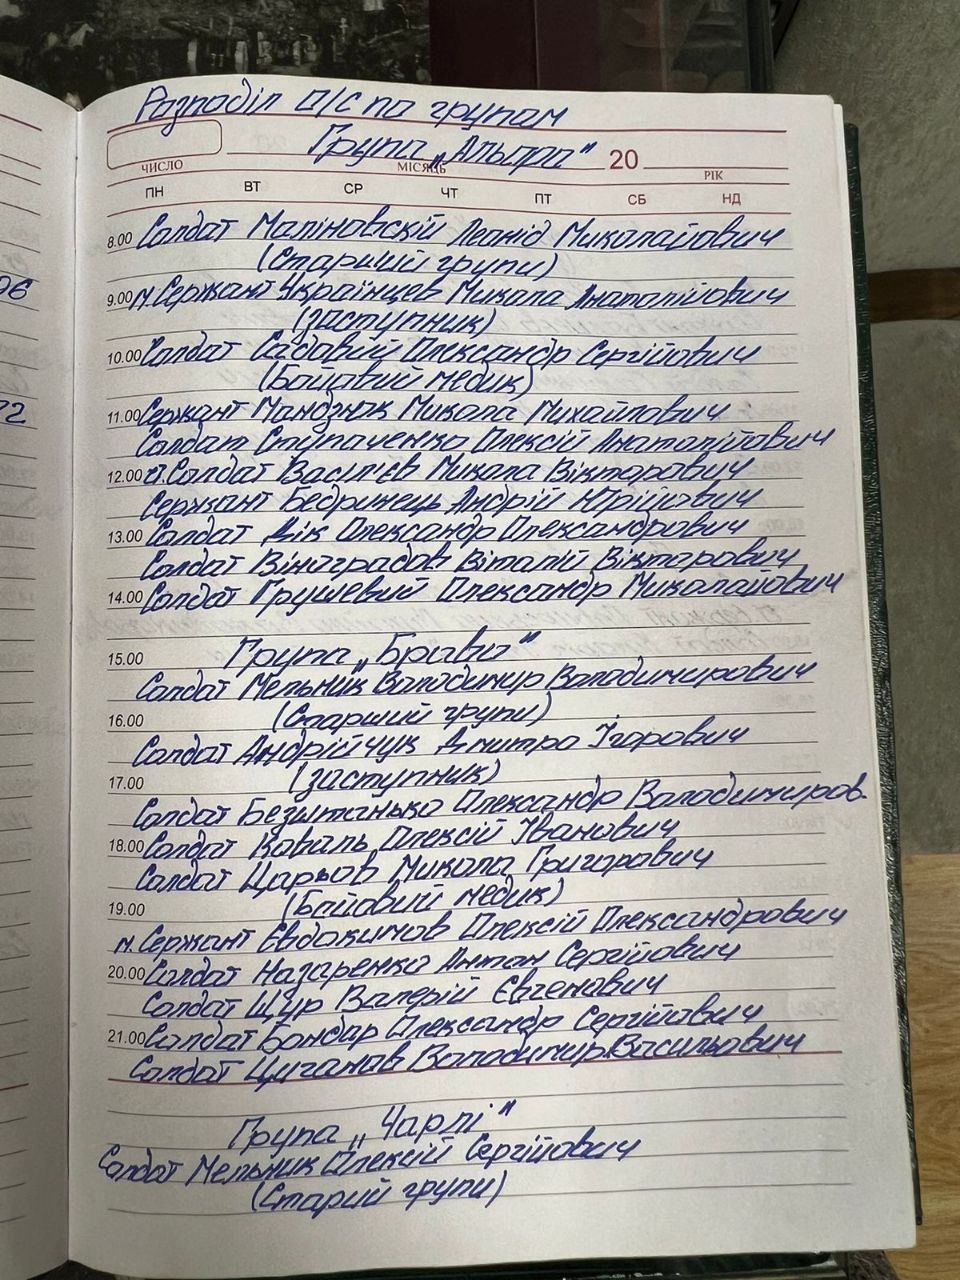 Розподіл о/с по групам
Група „Альфа"
20
ЧИСЛО МІСЯЦЬ РІК
ПН ВТ СР ЧТ ПТ СБ НД
8.00 Солдат Маліновскій Леонід Миколайович
(Старший групи)
9.00 м.Сержант Українцев Микола Анатолійович
(заступник)
10.00 Солдат Садовий Олександр Сергійович
(Бойовий медик)
11.00 Сержант Мандзюк Микола Михайлович
Солдат Ступаченко Олексій Анатолійович
12.00 ст.Солдат Васілієв Микола Вікторович
Сержант Бедринець Андрій Юрійович
13.00 Солдат Дік Олександр Олександрович
Солдат Віноградов Віталій Вікторович
14.00 Солдат Грушевий Олександр Миколайович
15.00 Група „Браво"
Солдат Мельник Володимир Володимирович
16.00 (Старший групи)
Солдат Андрійчук Дмитро Ігорович
17.00 (заступник)
Солдат Безштанько Олександр Володимиров.
18.00 Солдат Коваль Олексій Іванович
Солдат Царьов Микола Григорович
19.00 (Бойовий медик)
м.Сержант Євдокимов Олексій Олександрович
20.00 Солдат Назаренко Антон Сергійович
Солдат Щур Валерій Євгенович
21.00 Солдат Бондар Олександр Сергійович
Солдат Циганов Володимир Васильович
Група „Чарлі"
Солдат Мельник Олексій Сергійович
(Старий групи)